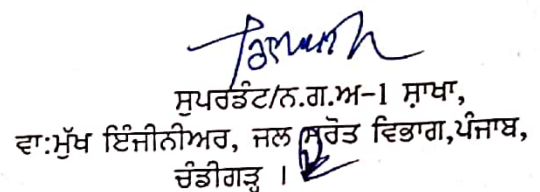 ਸੁਪਰਡੰਟ/ਨ.ਗ.ਅ-1 ਸ਼ਾਖਾ,
ਵਾ:ਮੁੱਖ ਇੰਜੀਨੀਅਰ, ਜਲ ਸਰੋਤ ਵਿਭਾਗ,ਪੰਜਾਬ,
ਚੰਡੀਗੜ੍ਹ ।